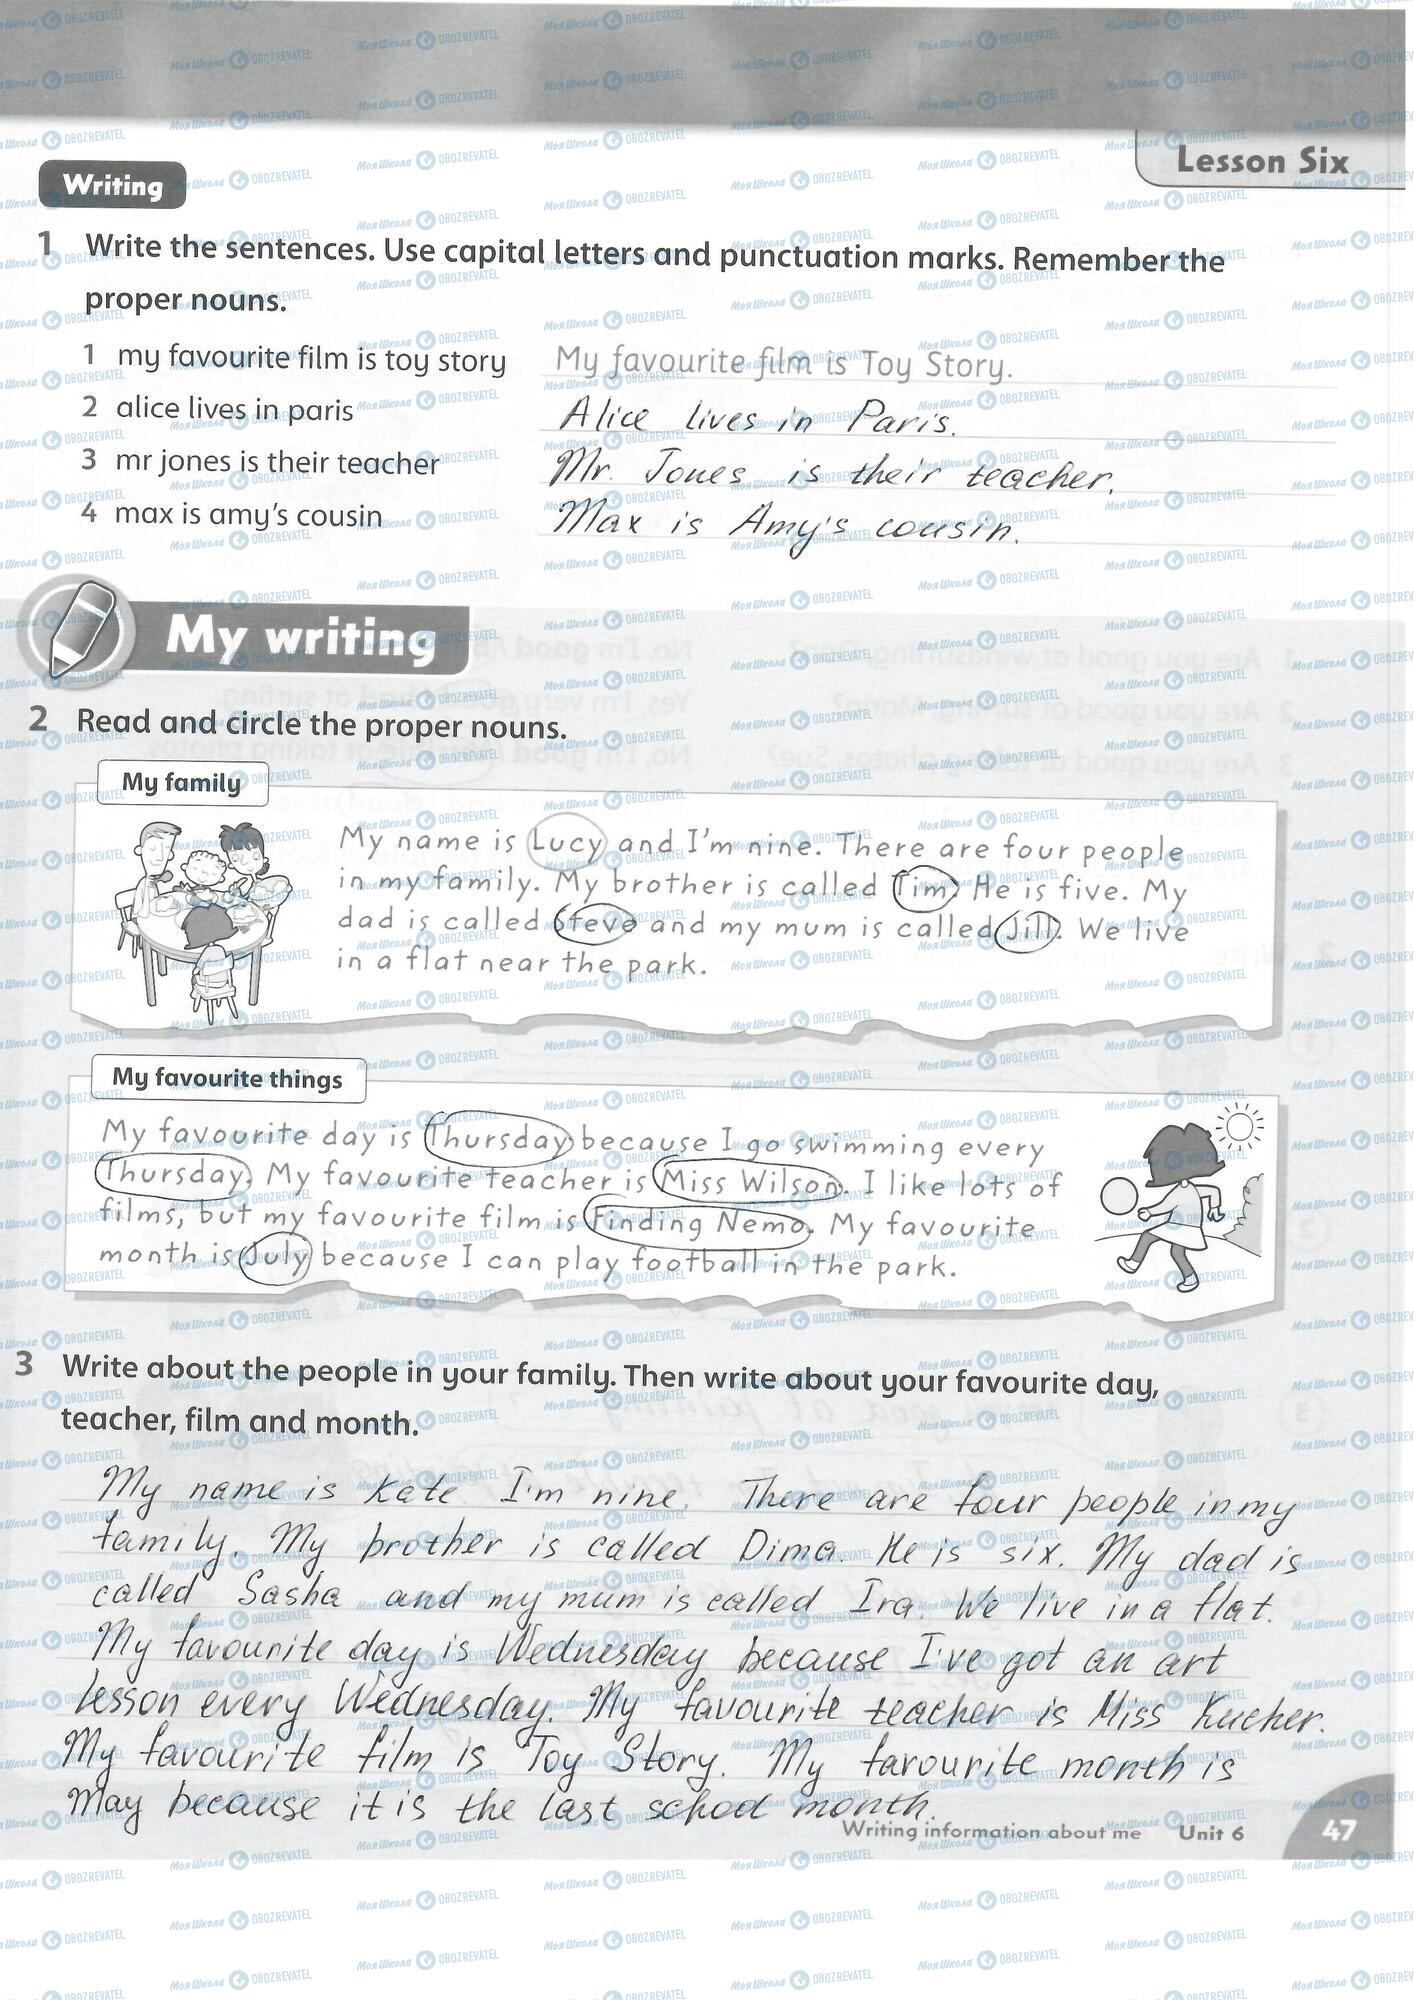 Lesson Six
Writing
1 Write the sentences. Use capital letters and punctuation marks. Remember the
proper nouns.
1 my favourite film is toy story My favourite film is Toy Story.
2 alice lives in paris Alice lives in Paris.
3 mr jones is their teacher Mr. Jones is their teacher.
4 max is amy's cousin Max is Amy's cousin.
My writing
2 Read and circle the proper nouns.
My family
My name is Lucy and I'm nine. There are four people
in my family. My brother is called Tim. He is five. My
dad is called Steve and my mum is called Jill. We live
in a flat near the park.
My favourite things
My favourite day is Thursday because I go swimming every
Thursday. My favourite teacher is Miss Wilson. I like lots of
films, but my favourite film is Finding Nemo. My favourite
month is July because I can play football in the park.
3 Write about the people in your family. Then write about your favourite day,
teacher, film and month.
My name is Kate I'm nine. There are four people in my
family. My brother is called Dima. He is six. My dad is
called Sasha and my mum is called Ira. We live in a flat.
My favourite day is Wednesday because I've got an art
lesson every Wednesday. My favourite teacher is Miss Kucher.
My favourite film is Toy Story. My favourite month is
May because it is the last school month.
Writing information about me Unit 6 47
Моя Школа OBOZREVATEL